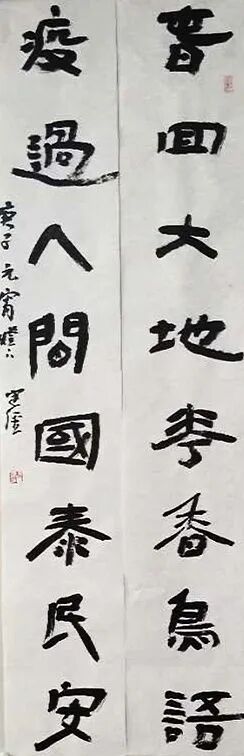 春回大地花香鳥語
疫過人間國泰民安
庚子元宵